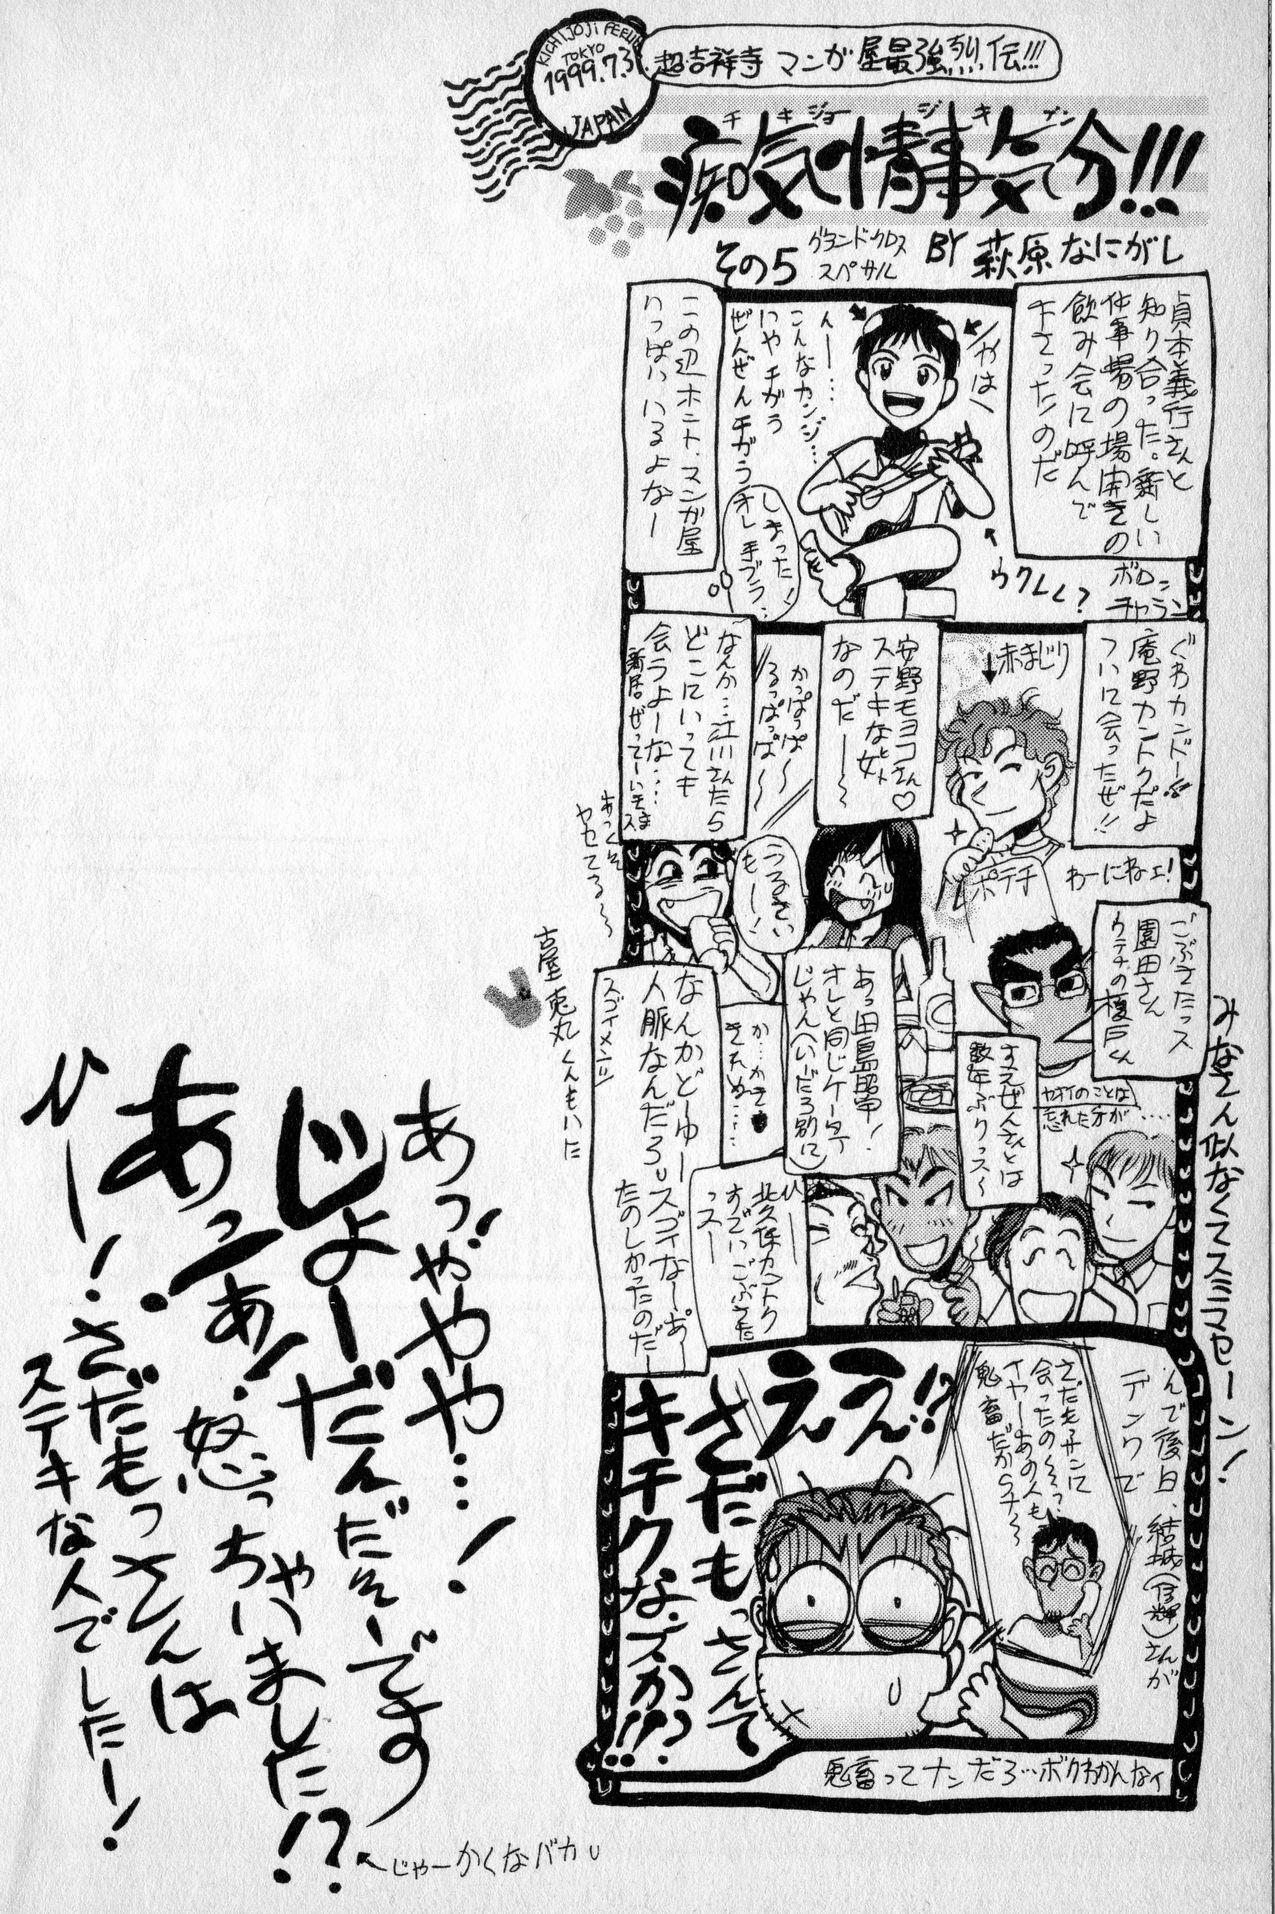 KICHIJOJI
TOKYO
1999.7.31.
JAPAN
超吉祥寺 マンガ屋最強烈伝!!!
チキジョージキブン
痴気情事気分!!!
その5
グランドクロス
スペサル
BY 萩原なにがし
貞本義行さんと
知り合った。新しい
仕事場の場開きの
飲み会に呼んで
下さったのだ
やは
ボロン
チャラン
ウクレレ?
んー…
こんなカンジ…
いやチがう
ぜんぜんチがう
しまった!
オレ手ブラ…
この辺ホント、マンガ屋
いっぱいいるよなー
ぐわカンドー!!
庵野カントクだよ
ついに会ったぜ!!
赤まじり
ポテチ
わーにねェ!
安野モヨコさん♡
ステキな女
なのだー〜
かっぱっぱ〜
るっぱっぱ〜
なんか…江川さんたら
どこにいっても
会うよーな…
うるさい
もー!
あっくそ
ヤセてる〜
ごぶさたっス
園田さん
ウテナの榎戸くん
すえぜんさんとは
数年ぶりっス〜
ヤオイのことは
忘れた分が……
あっ田島昭宇!
オレと同じケータイ
じゃん(いーだろ別に)
か…かてきためぬ…
ひーー
北久保カントク
すでいごぶさた
っスー
なんかどーゆー
人脈なんだろ
スゴイなーあー
たのしかったのだー
スゴイメンツ
古屋兎丸くんもいた
みなさん似なくてスミマセーン!
んで後日、結城(信輝)さんが
デンワで
さだもサンに
会ったのくそっ…
イヤーあの人も
鬼畜だからナ〜
ええ!?
さだもっさんて
キチクなズか!!?
鬼畜ってナンだろ…ボクわかんなィ
あっ、ややや…!
じょーだんだそーです
あっあ!怒っちゃいました!?
ひー!さだもっさんは
ステキな人でしたー!
←じゃーかくなバカ